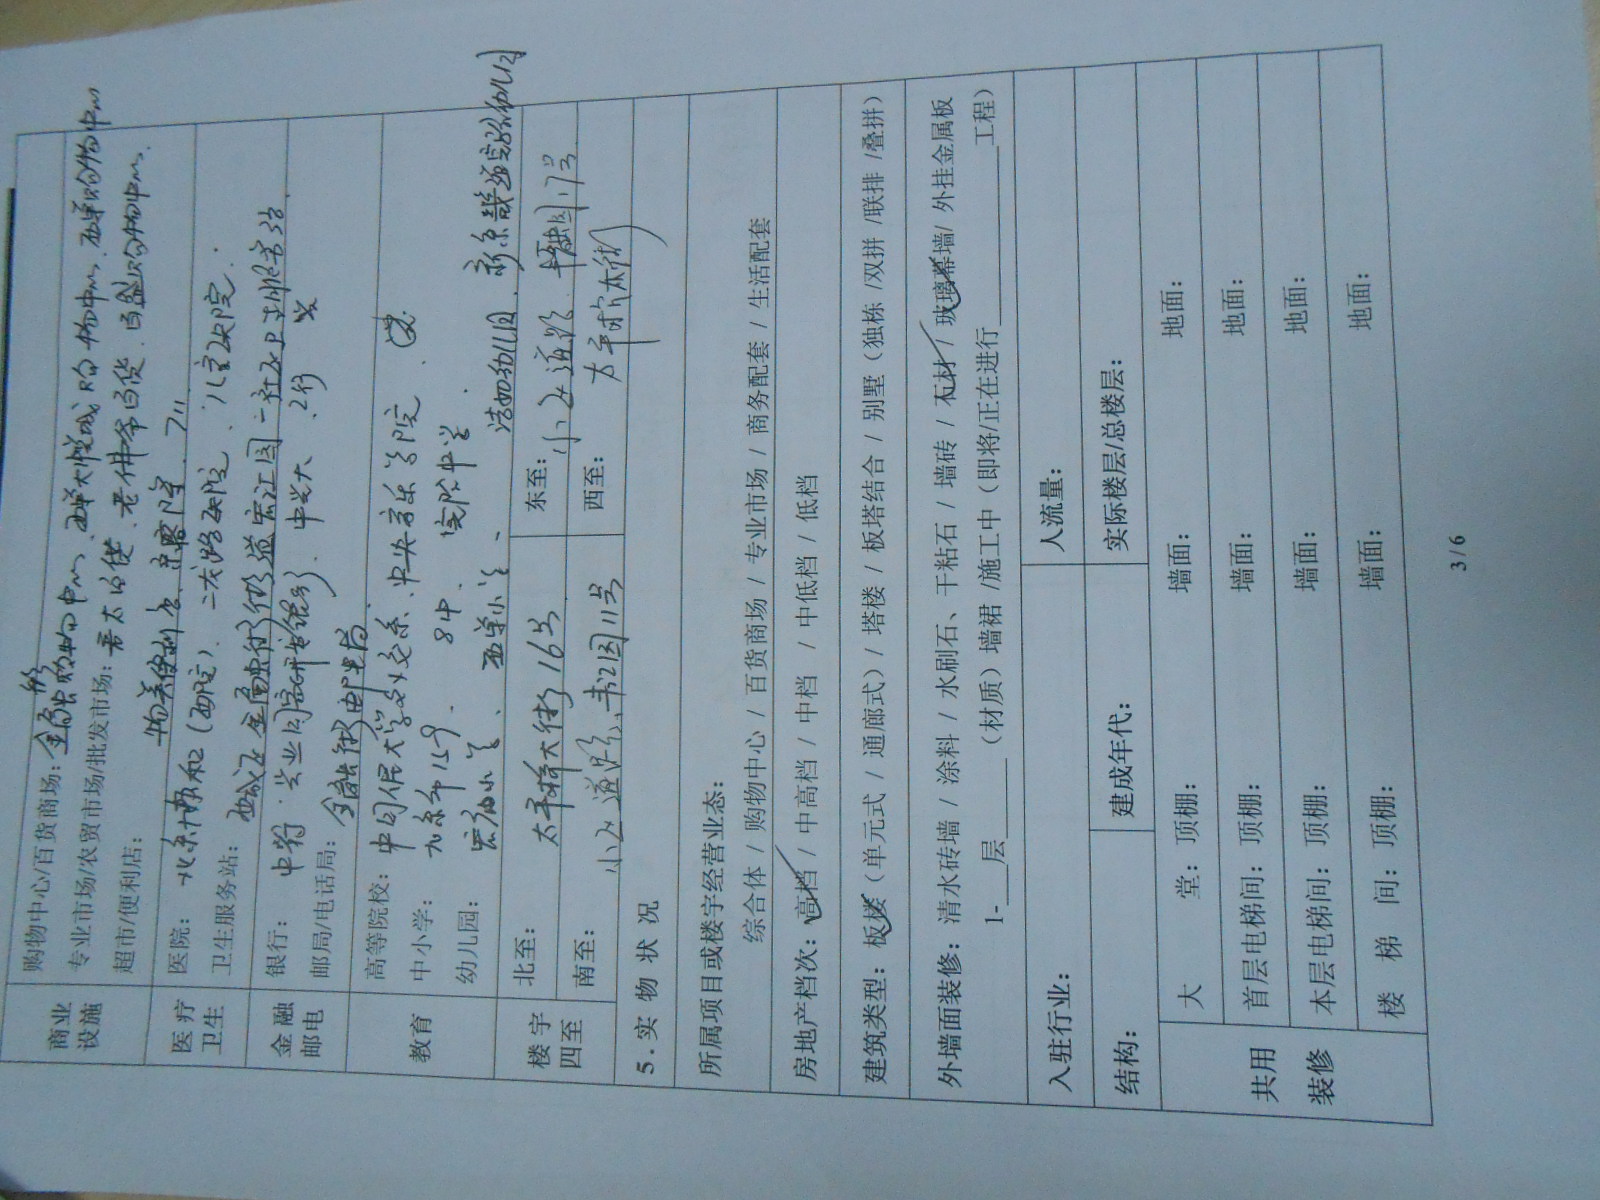 商业设施
购物中心/百货商场：金融街购物中心、西单大悦城购物中心、西单购物中心
专业市场/农贸市场/批发市场：老佛爷百货、
超市/便利店：物美便利店、
医疗卫生
医院：北京协和(西院)、二龙路医院、儿童医院.
卫生服务站：西城区金融街街道宏汇园二社区卫生服务站
金融邮电
银行：中行、
邮局/电话局：金融街邮电局
教育
高等院校：中国人民大学、中央音乐学院、
中小学：北京市159、8中、实验中学
幼儿园：洁如幼儿园、
宏庙小学、西单小学、
楼宇四至
北至：太平桥大街16号
东至：小区道路、丰融园17号
南至：小区道路、丰汇园11号
西至：太平桥大街
5.实 物 状 况
所属项目或楼宇经营业态：
综合体 / 购物中心 / 百货商场 / 专业市场 / 商务配套 / 生活配套
房地产档次：高档 / 中高档 / 中档 / 中低档 / 低档
建筑类型：板楼（单元式 / 通廊式）/ 塔楼 / 板塔结合 / 别墅（独栋 /双拼 /联排 /叠拼）
外墙面装修：清水砖墙 / 涂料 / 水刷石、干粘石 / 墙砖 / 石材 / 玻璃幕墙/ 外挂金属板
1-____层______（材质）墙裙 /施工中（即将/正在进行____________工程）
入驻行业：
人流量：
结构：
建成年代：
实际楼层/总楼层：
共用装修
大 堂：顶棚： 墙面： 地面：
首层电梯间：顶棚： 墙面： 地面：
本层电梯间：顶棚： 墙面： 地面：
楼 梯 间：顶棚： 墙面： 地面：
3/6